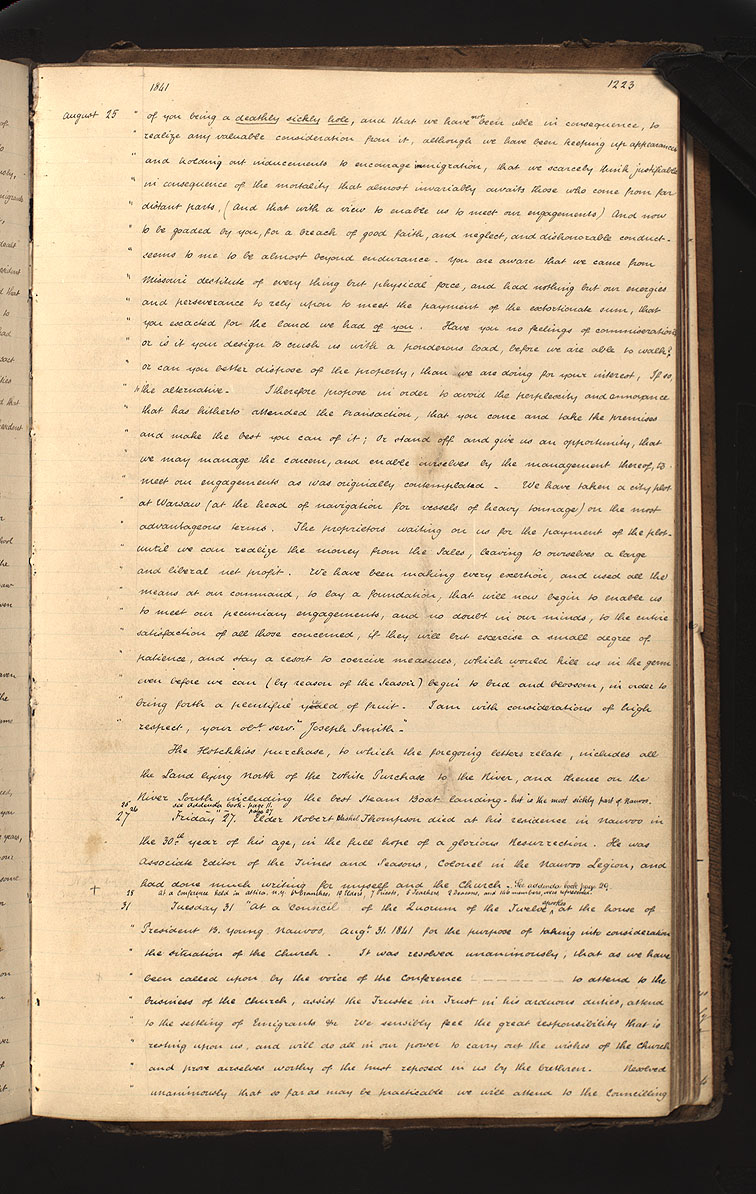 1841
1223
August 25 " of you being a deathly sickly hole, and that we have not been able in consequence, to
" realize any valuable consideration from it, although we have been keeping up appearances
" and holding out inducements to encourage immigration, that we scarcely think justifiable
" in consequence of the mortality that almost invariably awaits those who come from far
" distant parts, (And that with a view to enable us to meet our engagements) And now
" to be goaded by you, for a breach of good faith, and neglect, and dishonorable conduct-
" seems to me to be almost beyond endurance. You are aware that we came from
" Missouri destitute of every thing but physical force, and had nothing but our energies
" and perseverance to rely upon to meet the payment of the extortionate sum, that
" you exacted for the land we had of you. Have you no feelings of commiseration
" or is it your design to crush us with a ponderous load, before we are able to walk?
" or can you better dispose of the property, than we are doing for your interest, If so,
" to the alternative- I therefore propose in order to avoid the perplexity and annoyance
" that has hitherto attended the transaction, that you come and take the premises
" and make the best you can of it; Or stand off and give us an opportunity, that
" we may manage the concern, and enable ourselves by the management thereof, to
" meet our engagements as was originally contemplated - We have taken a city plot
" at Warsaw (at the head of navigation for vessels of heavy tonnage) on the most
" advantageous terms. The proprietors waiting on us for the payment of the plot-
" until we can realize the money from the Sales, leaving to ourselves a large
" and liberal net profit. We have been making every exertion, and used all the
" means at our command, to lay a foundation, that will now begin to enable us
" to meet our pecuniary engagements, and no doubt in our minds, to the entire
" satisfaction of all those concerned, if they will but exercise a small degree of
" patience, and stay a resort to coercive measures, which would kill us in the germ
" even before we can (by reason of the Season) begin to bud and blossom, in order to
" bring forth a plentiful yield of fruit. I am with considerations of high
" respect, your obt. servt. "Joseph Smith."
The Hotchkiss purchase, to which the foregoing letters relate, includes all
the Land lying North of the White Purchase to the River, and thence on the
River South including the best Steam Boat landing - but is the most sickly part of Nauvoo.
25 26 see addenda book - page 17 page 27
27 Friday 27. Elder Robert Blashel Thompson died at his residence in Nauvoo in
the 30th year of his age, in the full hope of a glorious Resurrection. He was
Associate Editor of the Times and Seasons, Colonel in the Nauvoo Legion, and
had done much writing for myself and the Church - See addenda book page 29.
+ 28 At a Conference held in Attica, N.Y. branches, 19 Elders, 7 Priests, Teachers, Deacons, and members, were represented.
31 Tuesday 31 "At a Council of the Quorum of the Twelve apostles at the house of
" President B. Young Nauvoo, Augt. 31. 1841 for the purpose of taking into consideration
" the situation of the Church. It was resolved unanimously, that as we have
" been called upon by the voice of the Conference to attend to the
" business of the Church, assist the Trustee in Trust in his arduous duties, attend
" to the settling of Emigrants &c We sensibly feel the great responsibility that is
" resting upon us, and will do all in our power to carry out the wishes of the Church
" and prove ourselves worthy of the trust reposed in us by the brethren. Resolved
" unanimously that so far as may be practicable we will attend to the Councilling